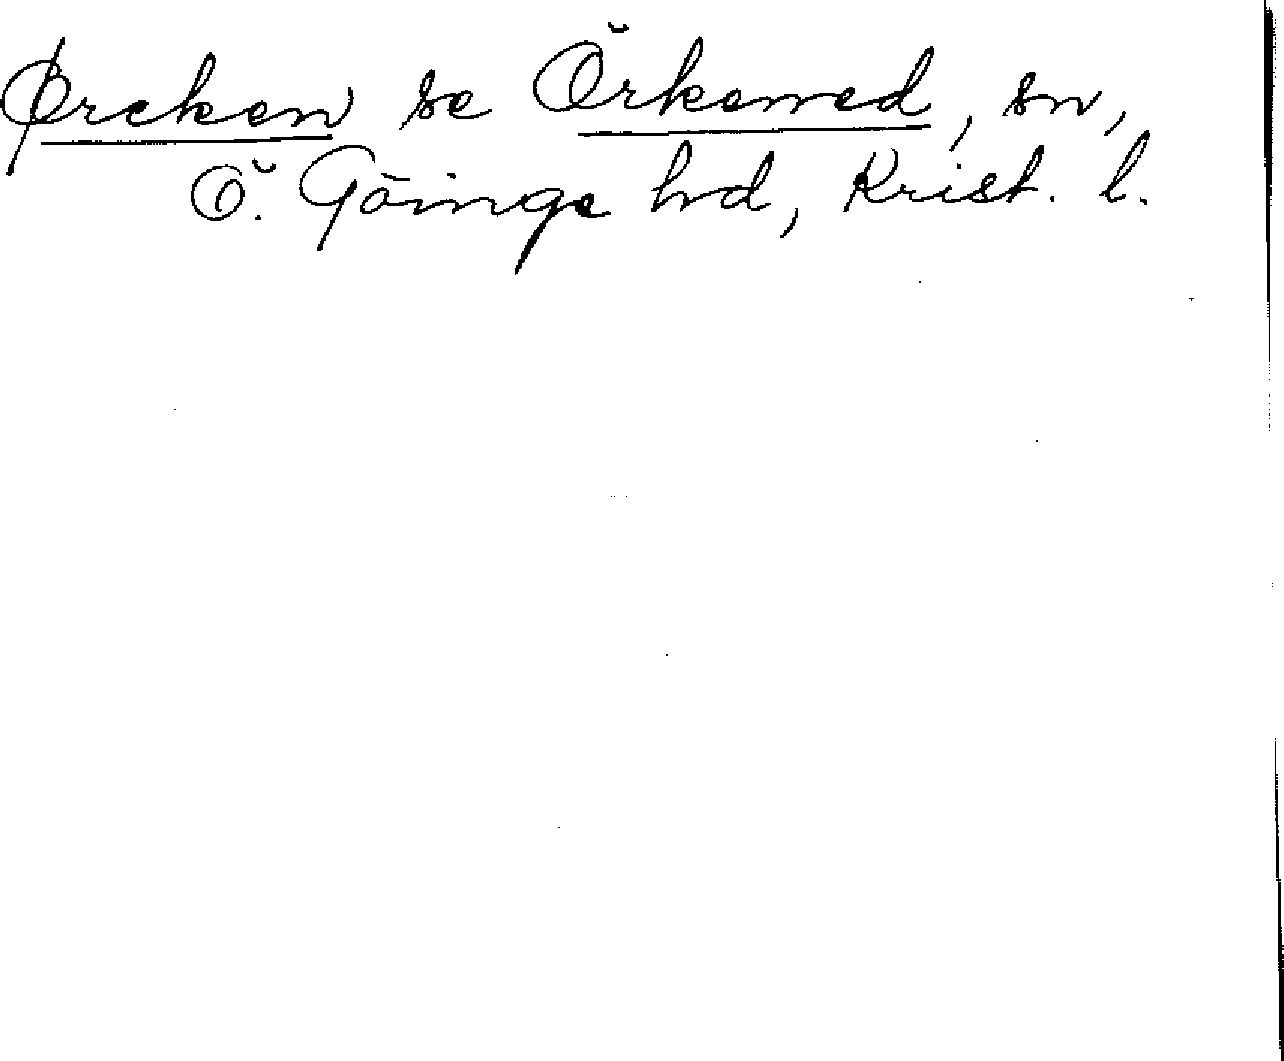 Ørcken se Örkened, sn,
Ö. Göinge hd, Krist. l.